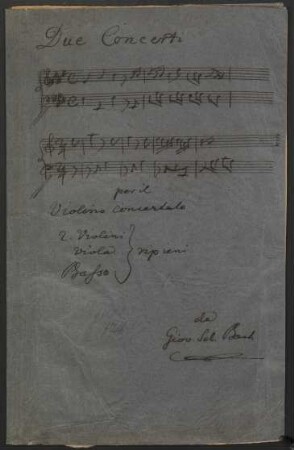 Due Concerti
per il
Violino concertato
2. Violini
Viola
Basso
ripieni
da
Giov. Seb. Bach